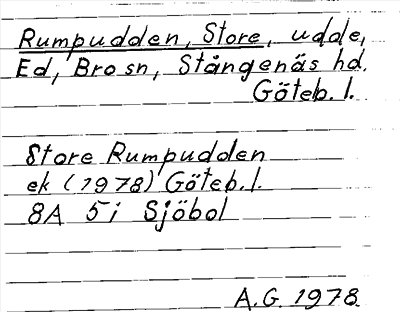 Rumpudden, Store, udde,
Ed, Bro sn, Stångenäs hd.
Göteb. l.
Store Rumpudden
ek (1978) Göteb. l.
8A 5i Sjöbol
A.G. 1978